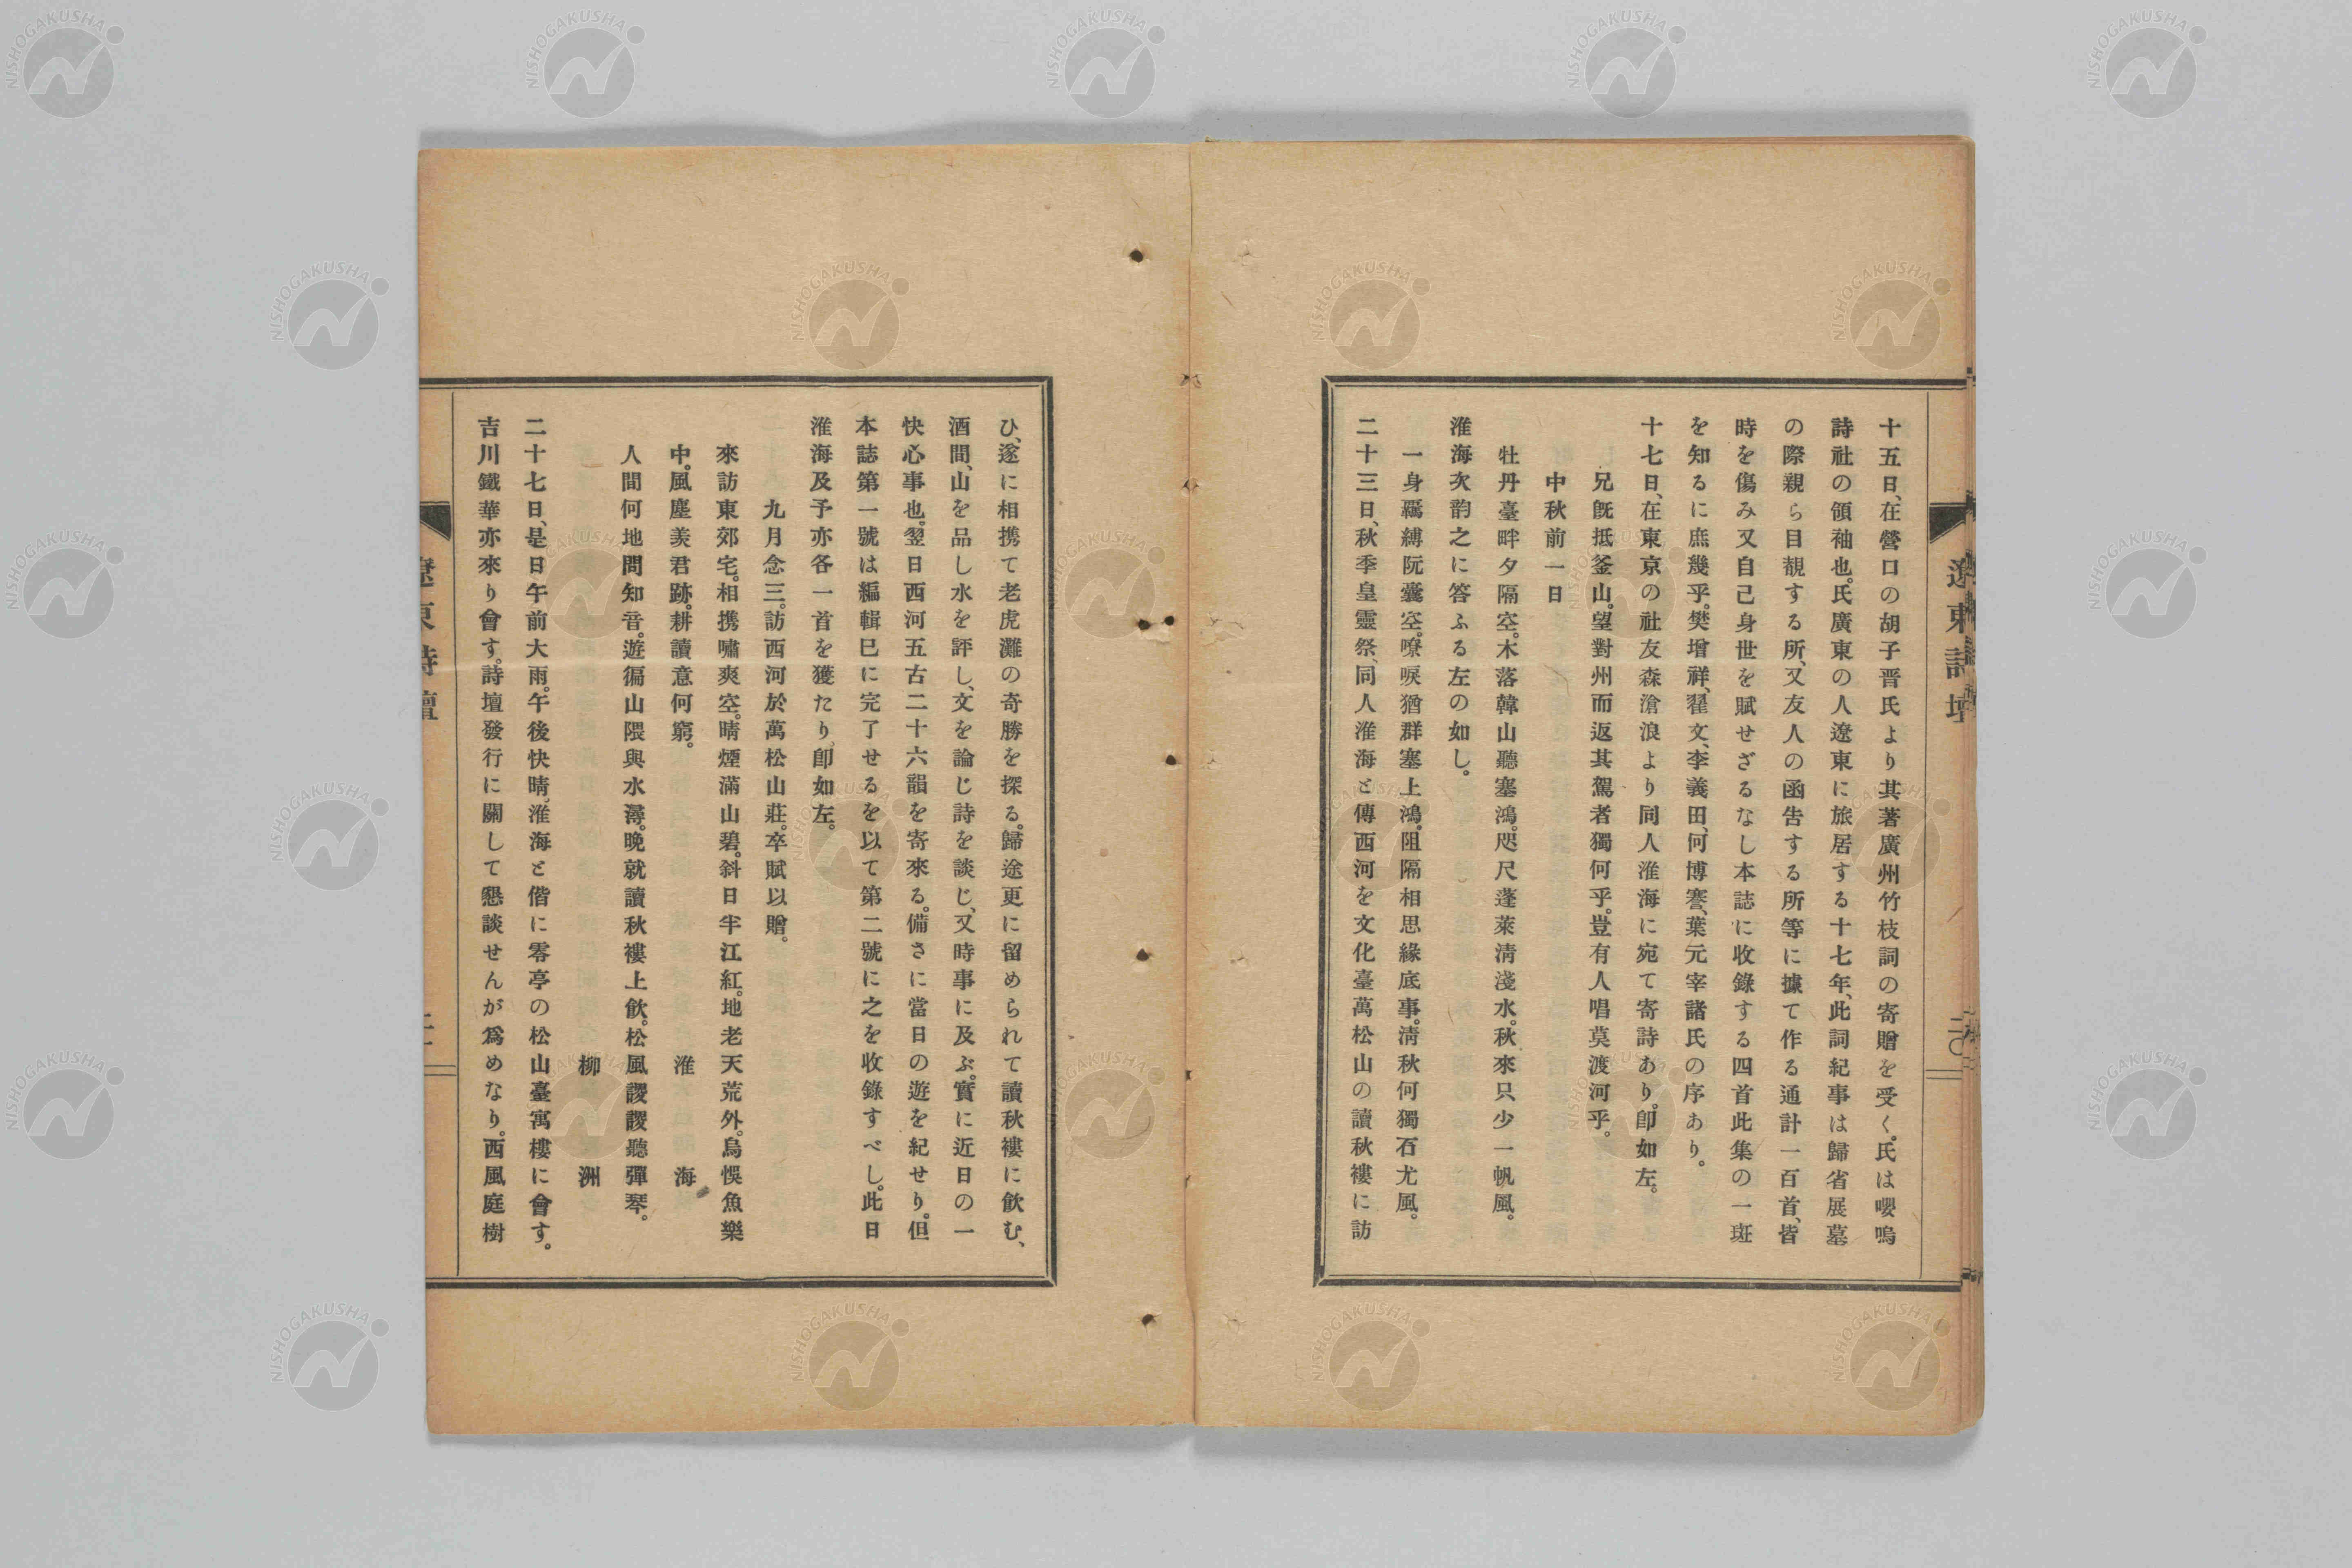 遼東詩壇
二〇
十五日、在營口の胡子晋氏より其著廣州竹枝詞の寄贈を受く。氏は嚶鳴
詩社の領袖也。氏廣東の人遼東に旅居する十七年、此詞紀事は歸省展墓
の際親ら目覩する所、又友人の函告する所等に據て作る通計一百首、皆
時を傷み又自己身世を賦せざるなし本誌に收錄する四首此集の一斑
を知るに庶幾乎。樊增祥、翟文、李義田、何博謇、葉元宰諸氏の序あり。
十七日、在東京の社友森滄浪より同人淮海に宛て寄詩あり。卽如左。
兄旣抵釜山。望對州而返其駕者獨何乎。豈有人唱莫渡河乎。
中秋前一日
牡丹臺畔夕隔空。木落韓山聽塞鴻。咫尺蓬萊淸淺水。秋來只少一帆風。
淮海次韵之に答ふる左の如し。
一身羈縛阮囊空。嘹唳猶群塞上鴻。阻隔相思緣底事。淸秋何獨石尤風。
二十三日、秋季皇靈祭、同人淮海と傳西河を文化臺萬松山の讀秋樓に訪
ひ、遂に相携て老虎灘の奇勝を探る。歸途更に留められて讀秋樓に飮む、
酒間、山を品し水を評し、文を論じ詩を談じ、又時事に及ぶ。實に近日の一
快心事也。翌日西河五古二十六韻を寄來る。備さに當日の遊を紀せり。但
本誌第一號は編輯已に完了せるを以て第二號に之を收錄すべし。此日
淮海及予亦各一首を獲たり。卽如左。
九月念三。訪西河於萬松山莊。卒賦以贈。
來訪東郊宅。相携嘯爽空。晴煙滿山碧。斜日半江紅。地老天荒外。鳥悞魚樂
中。風塵羨君跡。耕讀意何窮。 淮海
人間何地問知音。遊徧山隈與水潯。晩就讀秋樓上飮。松風謖謖聽彈琴。
柳洲
二十七日、是日午前大雨。午後快晴。淮海と偕に零亭の松山臺寓樓に會す。
吉川鐵華亦來り會す。詩壇發行に關して懇談せんが爲めなり。西風庭樹
遼東詩壇